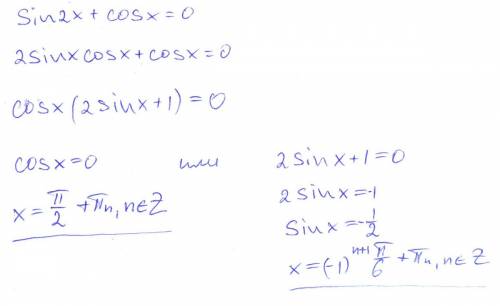 sin2x + cosx = 0
2sinxcosx + cosx = 0
cosx(2sinx+1) = 0
cosx = 0 или 2sinx+1=0
x = π/2 + πn, n∈Z
2sinx = -1
sinx = -1/2
x = (-1)^(n+1) π/6 + πn, n∈Z